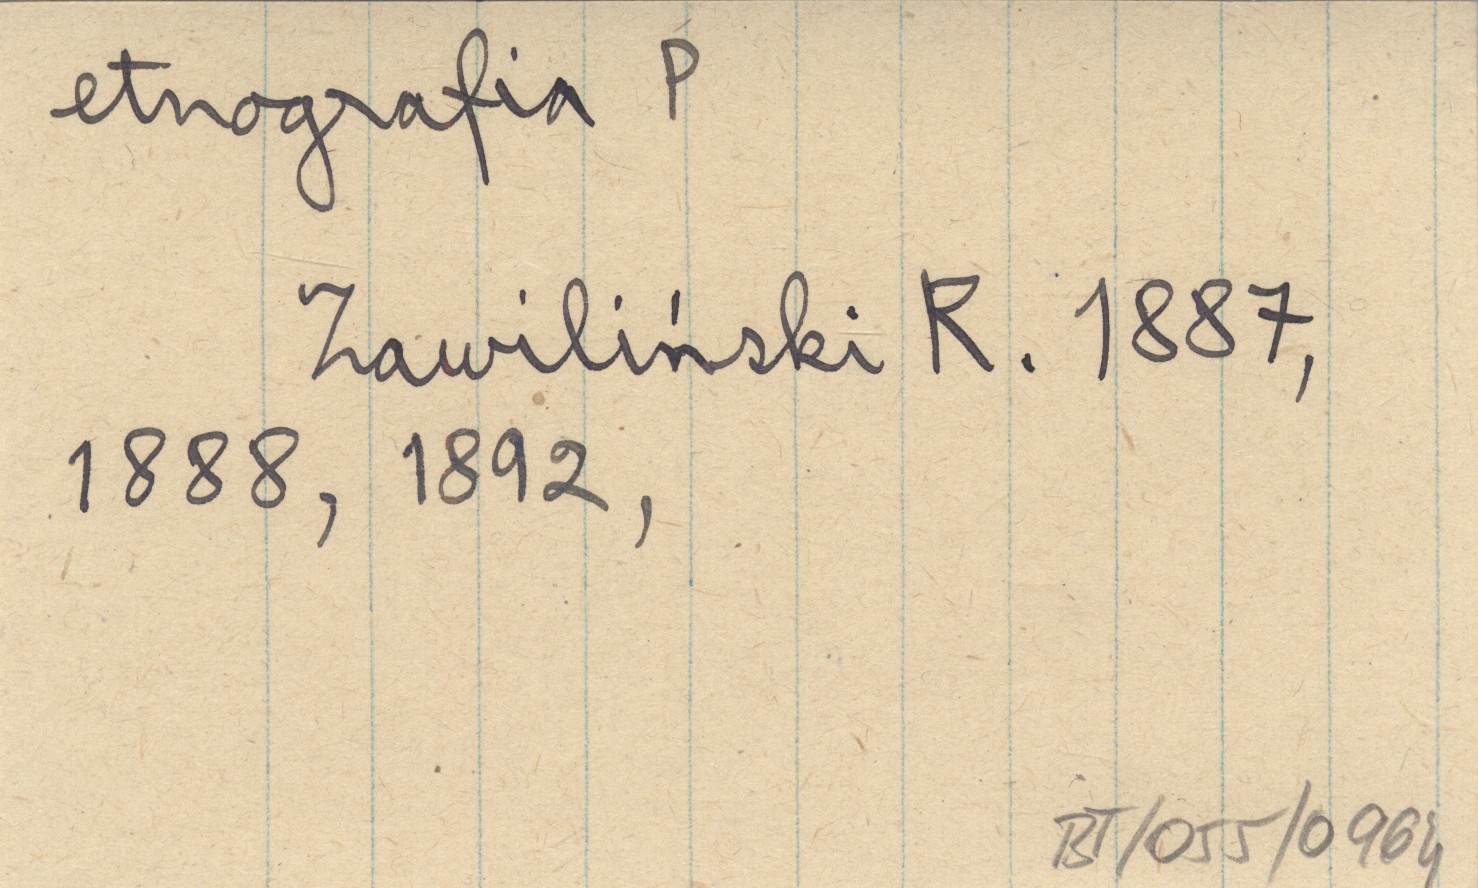 etnografia P
Zawiliński R. 1887,
1888, 1892,
BT/055/0964